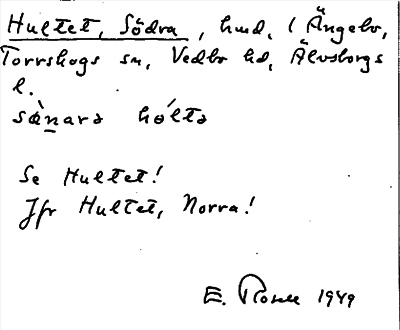 Hultet, Södra, hmd, l Ängebo,
Torrskogs sn, Vedbo hd, Älvsborgs
l.
sànara hólta
Se Hultet!
Jfr Hultet, Norra!
E. Rosell 1949